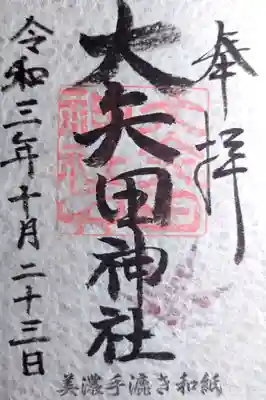 奉拝
大矢田神社
令和三年十月二十三日
美濃手漉き和紙